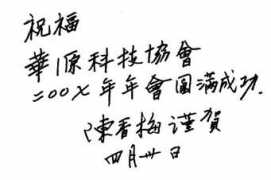 祝福
華源科技協會
二00乂年年會圓滿成功.
陳香梅謹賀
四月卅日